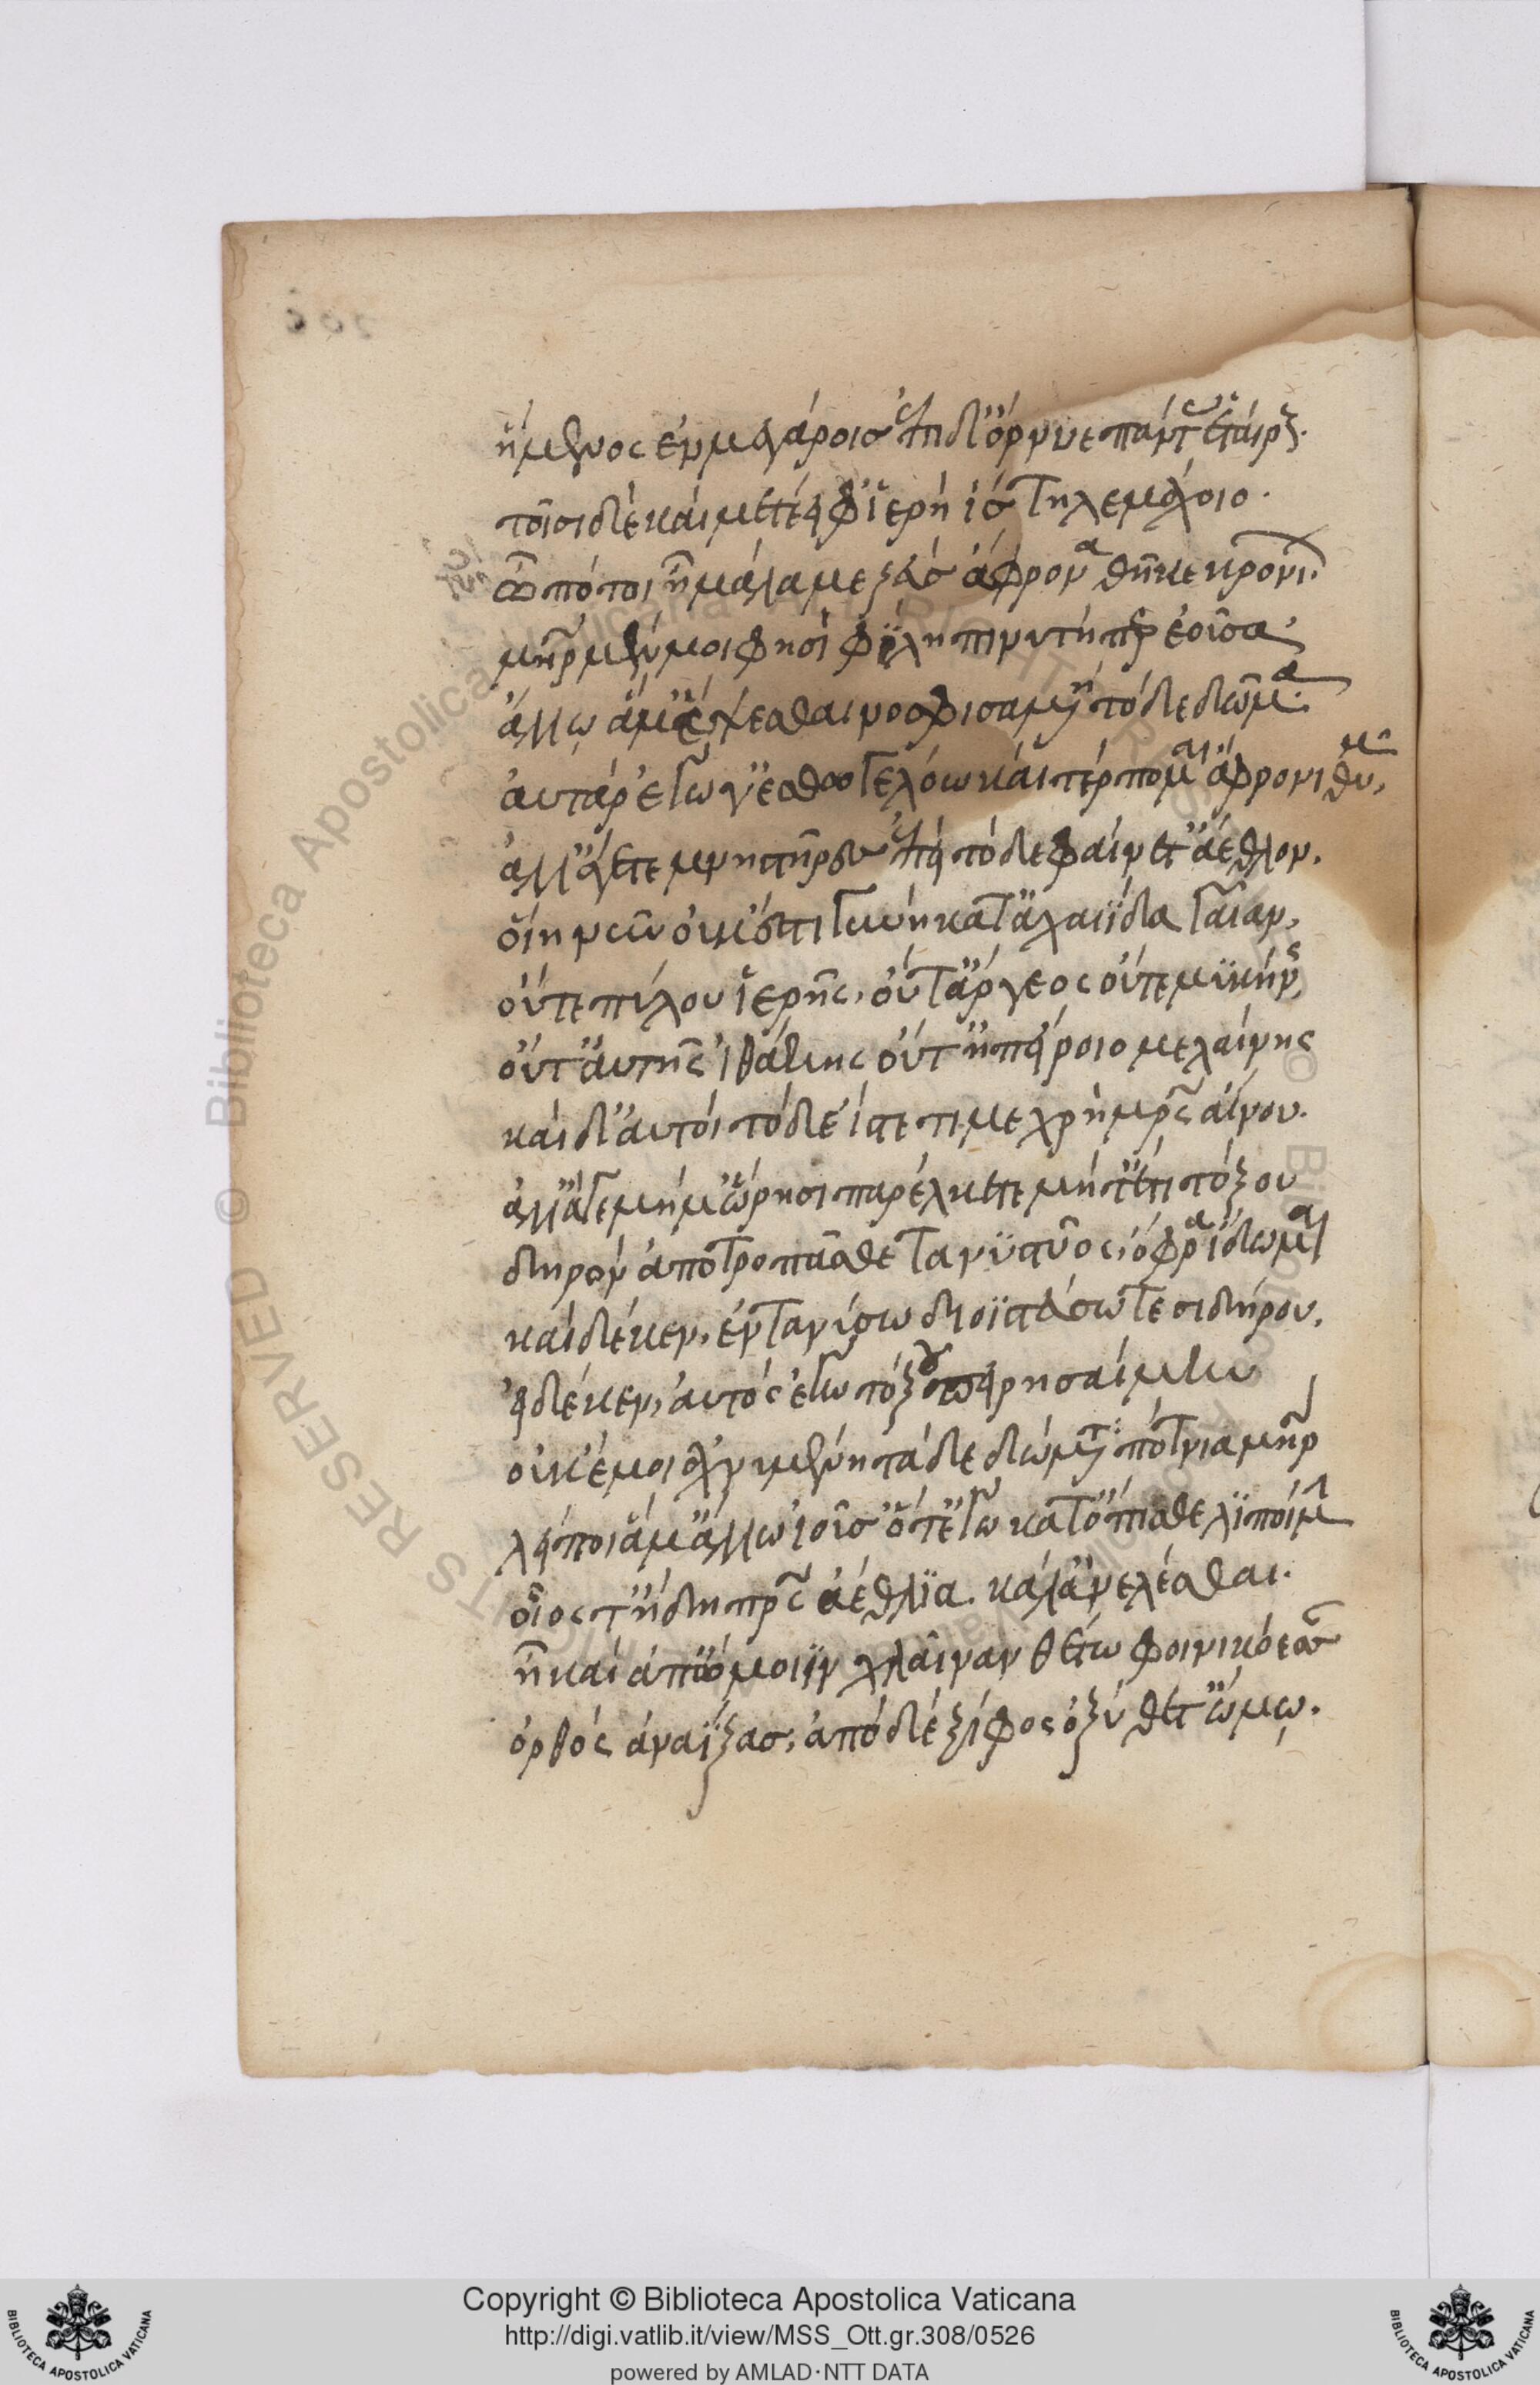 ἥμενος ἐν μεγάροισ' ἐπὶ δ' ὄρνυε πάντας ἑταίρους.
τοῖσι δὲ καὶ μετέειφ' ἱερὴ ἲσ τηλεμάχοιο.
ὢ πόποι ἦ μάλα με ζεὺσ ἄφρονα θῆκε κρονίων.
μήτηρ μέν μοι φησὶ φίλη πινυτή περ ἐοῦσα
ἄλλω ἅμ' ἕψεσθαι νοσφισαμένη τόδε δῶμα.
αὐτὰρ ἐγὼ γελόω καὶ τέρπομαι ἄφρονι θυμῶ,
ἀλλ' ἄγετε μνηστῆρεσ ἐπεὶ τόδε φαίνετ' ἄεθλον,
οἵη νῦν οὐκ ἔστι γυνὴ κατ' ἀχαιΐδα γαῖαν,
οὔτε πύλου ἱερῆς, οὔτ' ἄργεος οὔτε μυκήνης
οὔτ' αὐτῆς ἰθάκης οὔτ' ἠπείροιο μελαίνης
καὶ δ' αὐτοὶ τόδε ἴστε τί με χρὴ μητρὸς αἴνου.
ἀλλ' ἄγε μὴ μύνησι παρέλκετε μηδ' ἔτι τόξου
δηρὸν ἀποτροπᾶσθε τανυστύος, ὄφρα ἴδωμαι
καὶ δέ κεν, ἐντανύσω διοϊστεύσω τε σιδήρου,
εἰ δέ κεν, αὐτὸς ἐγὼ τόξου πειρησαίμην
οὐκέ μοι ἀχνυμένη τάδε δώματα πότνια μήτηρ
λείποι ἅμ' ἄλλω ἰοῦσ' ὅτ' ἐγὼ κατόπισθε λιποίμην
οἷος τ' ἤδη πατρὸς ἀέθλια κάλ' ἀνελέσθαι.
ἦ καὶ ἀπ' ὤμοιϊν χλαῖναν θέτο φοινικόεσσαν
ὀρθὸς ἀναΐξασ, ἀπὸ δὲ ξίφος ὀξὺ θέτ' ὤμω.
Copyright © Biblioteca Apostolica Vaticana
http://digi.vatlib.it/view/MSS_Ott.gr.308/0526
powered by AMLAD·NTT DATA